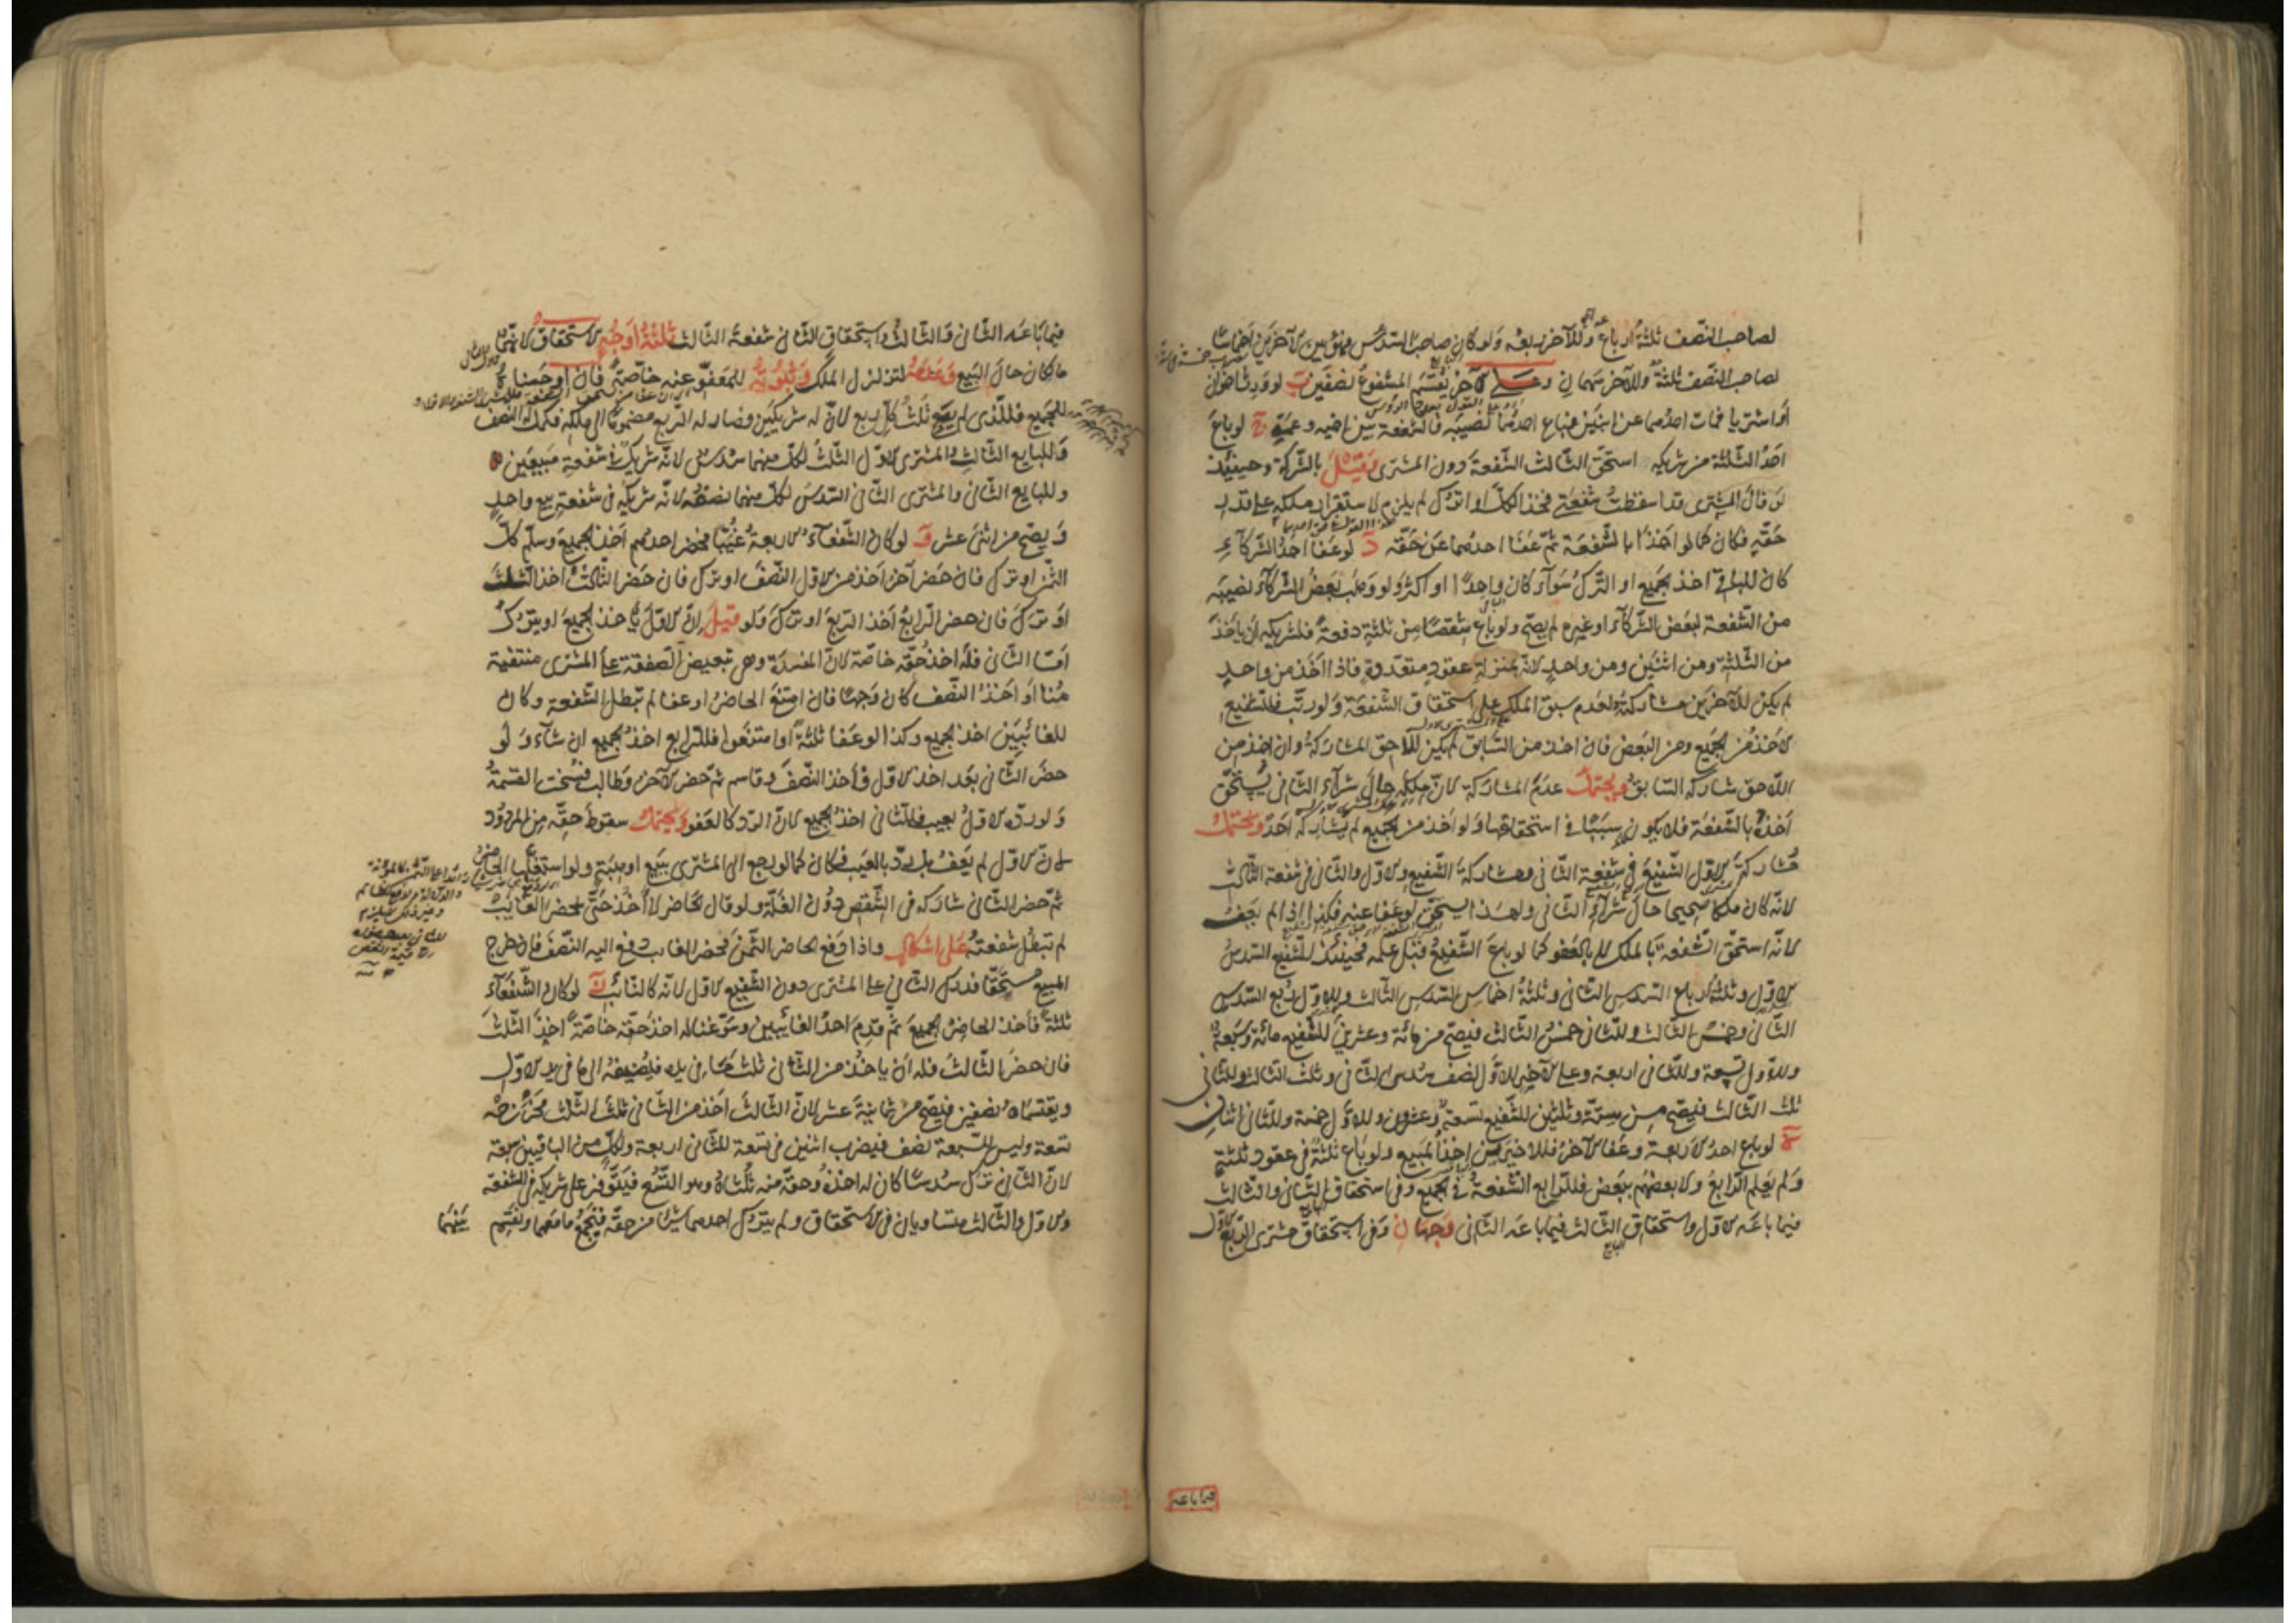 لصاحب النّصف ثلثة ارباع وللآخر ربعه ولو كان صاحب السّدس فهو بين الآخرين اخماسًا
لصاحب النّصف ثلثة وللآخر سهمان وعلى الآخر يقسم المشفوع نصفين ب لو ورث اخوان
او اشتريا فمات احدهما عن ابنين فباع احدهما نصيبه فالشفعة بين اخيه وعمّه ج لو باع
احد الثّلثة من شريكه استحق الثالث الشّفعة دون المشترى وقيل بالشّركة وحينئذ
لو قال المشترى قد اسقطت شفعتى فخذ الكلّ او اترك لم يلزم لاستقرار ملكه على قدر
حقّه فكان كما لو اخذا بالشّفعة ثمّ عفا احدهما عن حقّه د لو عفا احد الشّركآء
كان للباقى اخذ الجميع او التّرك سوآء كان واحدًا او اكثر ولو وهب بعض الشّركآء نصيبه
من الشّفعة لبعض الشّركآء او غيره لم يصحّ ولو باع شقصًا من ثلثة دفعة فلشريكه ان ياخذ
من الثّلثة ومن اثنين ومن واحد لانّه بمنزلة عقود متعدّدة فاذا اخذ من واحد
لم يكن للآخرين مشاركته لعدم سبق الملك على استحقاق الشّفعة ولو رتّب فللشّفيع
الاخذ من الجميع ومن البعض فان اخذ من السّابق لم يكن للّاحق المشاركة وان اخذ من
اللّاحق شاركه السّابق ويحتمل عدم المشاركة لانّ ملكه حال شرآء الثّانى يستحقّ
اخذه بالشّفعة فلا يكون سببًا فى استحقاقها ولو اخذ من الجميع لم يشاركه احد ويحتمل
مشاركة الاول الشّفيع فى شفعة الثّانى ومشاركة الشّفيع والاوّل والثّانى فى شفعة الثّالث
لانّه كان ملكا صحيحا حال شرآء الثّانى ولهذا يستحقّ لو عفا عنه فكذا اذا لم يعف
لانّه استحقّ الشّفعة بالملك لا بالعفو كما لو باع الشّفيع قبل علمه فحينئذ للشّفيع السّدس
الاوّل وثلثة ارباع السّدس الثّانى وثلثة اخماس السّدس الثّالث وللاوّل ربع السّدس
الثّانى وخمس الثّالث وللثّانى خمس الثّالث فيصحّ من مائة وعشرين للشّفيع مائة وسبعة
وللاوّل تسعة وللثّانى اربعة وعلى الآخر للاوّل نصف سدس الثّانى وثلث الثّالث وللثّانى
ثلث الثّالث فيصحّ من ستّة وثلثين للشّفيع تسعة وعشرون وللاوّل خمسة وللثّانى اثنان
ه لو باع احد الاربعة وعفا الآخر فللاخيرين اخذ المبيع ولو باع ثلثة فى عقود ثلثة
ولم يعلم الرّابع ولا بعضهم ببعض فللرّابع الشّفعة فى الجميع وفى استحقاق الثّانى والثّالث
فيما باعه الاوّل واستحقاق الثّالث فيما باعه الثّانى وجهان وفى استحقاق مشترى الرّبع الاوّل
فيما باعه
فيما باعه الثّانى والثّالث واستحقاق الثّانى شفعة الثّالث ثلثة اوجه الاستحقاق لانّهما
مالكان حال البيع وعدمه لتزلزل الملك وثبوته للمعفوّ عنه خاصّة فان اوجبناه
للجميع فللّذى لم يبع ثلث كلّ ربع لانّ له شريكين فصار له الرّبع مضمومًا الى ملكه فكمل له النّصف
وللبايع الثّالث والمشترى الاوّل الثّلث لكلّ منهما سدس لانّه شريك فى شفعة مبيعين
وللبايع الثّانى والمشترى الثّانى السّدس لكلّ منهما نصفه لانّه شريكه فى شفعة بيع واحد
ويصحّ من اثنى عشر و لو كان الشّفعآء الاربعة غيّبًا فحضر احدهم اخذ الجميع وسلّم كلّ
الثّمن او ترك فان حضر آخر اخذ من الاوّل النّصف او ترك فان حضر الثّالث اخذ الثّلث
او ترك فان حضر الرّابع اخذ الرّبع او ترك ولو قيل انّ الاوّل ياخذ الجميع او يترك
امّا الثّانى فله اخذ حقّه خاصّة لانّ المفسدة وهى تبعيض الصّفقة على المشترى منتفية
هنا او اخذ النّصف كان وجهًا فان امتنع الحاضر او عفا لم تبطل الشّفعة وكان
للغائبين اخذ الجميع وكذا لو عفا ثلثة او امتنعوا فللرّابع اخذ الجميع ان شآء ولو
حضر الثّانى بعد اخذ الاوّل فاخذ النّصف وقاسم ثمّ حضر الآخر وطالب فسخت القسمة
ولو ردّه الاوّل بعيب فللثّانى اخذ الجميع لانّ الرّد كالعفو ويحتمل سقوط حقّه من المردود
لانّ الاوّل لم يعف بل ردّ بالعيب فكان كما لو رجع الى المشترى ببيع او هبة ولو استغلّها الحاضر
ثمّ حضر الثّانى شاركه فى الشّقص دون الغلّة ولو قال الحاضر لا آخذ حتّى يحضر الغايب
لم تبطل شفعته على اشكال واذا دفع الحاضر الثّمن فحضر الغايب دفع اليه النّصف فان خرج
المبيع مستحقًّا فدرك الثّانى على المشترى دون الشّفيع الاوّل لانّه كالنّائب لو كان الشّفعآء
ثلثة فاخذ الحاضر الجميع ثمّ قدم احد الغائبين وسوّغنا له اخذ حقّه خاصّة اخذ الثّلث
فان حضر الثّالث فله ان ياخذ من الثّانى ثلث ما فى يده فيضيفه الى ما فى يد الاوّل
ويقتسمانه نصفين فيصحّ من ثمانية عشر لانّ الثّالث اخذ من الثّانى ثلث الثّلث ومخرجه
تسعة وليس للسّبعة نصف فيضرب اثنين فى تسعة للثّانى اربعة ولكلّ من الباقيين سبعة
لانّ الثّانى ترك سدسًا كان له اخذه وحقّه منه ثلثاه وهو التّسع فيتوفّر على شريكيه فى الشّفعة
والاوّل والثّالث متساويان فى الاستحقاق ولم يترك احدهما شيئا من حقّه فيجمع ما معهما ويقسم
بينهما